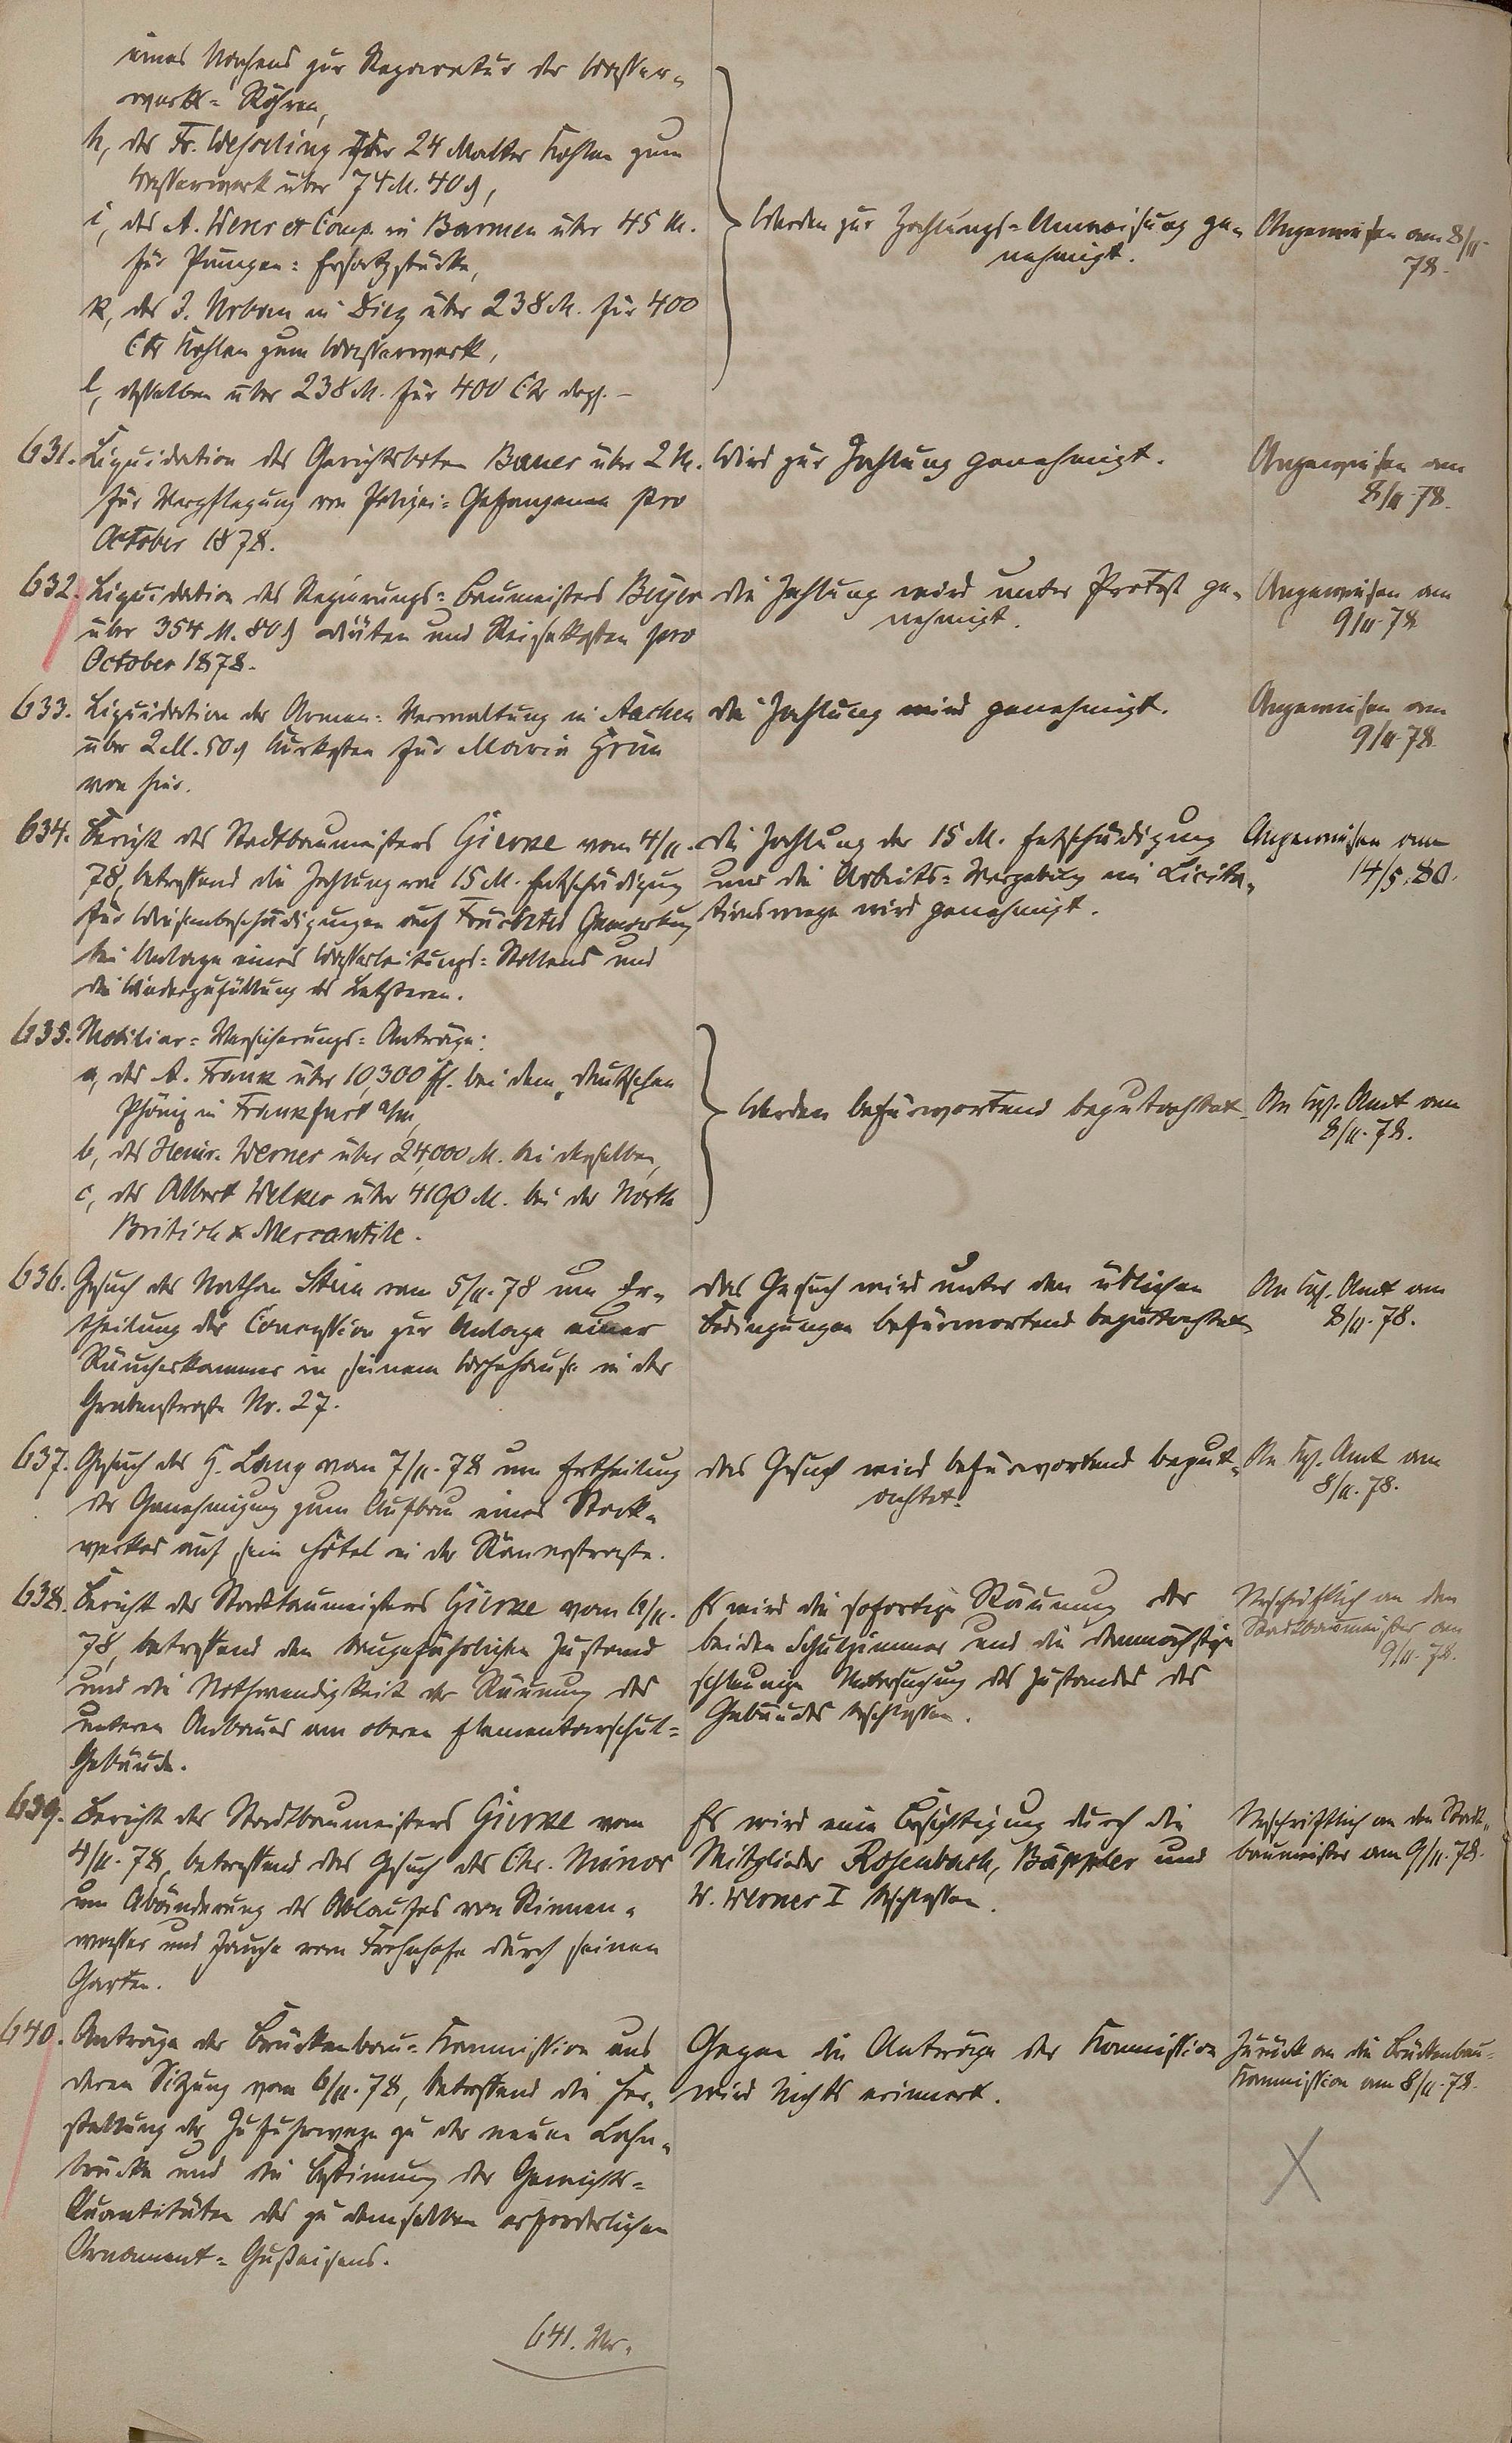 eines Wagens zur Reparatur der Wasser-
werks-Röhren,
h, des Fr. Wesseling über 24 Malter Kohlen zum
Wasserwerk über 74 M. 40 ₰,
i, des A. Werer et Comp. in Barmen über 45 M.
für Pumpen-Ersatzstücke,
k, des J. Urban in Diez über 238 M. für 400
Ctr Kohlen zum Wasserwerk,
l, desselben über 238 M. für 400 Ctr desgl. –
Werden zur Zahlungs-Anweisung ge-
nehmigt.
Angewiesen am 8/11.
78.
631. Liquidation des Gerichtsboten Bauer über 2 M.
für Verpflegung von Polizei-Gefangenen pro
October 1878.
Wird zur Zahlung genehmigt.
Angewiesen am
8/11. 78.
632. Liquidation des Regierungs-Baumeisters Beyer
über 354 M. 80 ₰ Diäten und Reisekosten pro
October 1878.
Die Zahlung wird unter Protest ge-
nehmigt.
Angewiesen am
9/11. 78
633. Liquidation der Armen-Verwaltung in Aachen
über 2 M. 50 ₰ Kurkosten für Maria Grün
von hier.
Die Zahlung wird genehmigt.
Angewiesen am
9/11. 78.
634. Bericht des Stadtbaumeisters Gierke vom 4/11.
78, betreffend die Zahlung von 15 M. Entschädigung
für Wiesenbeschädigungen auf Fruchter Gemarkung
bei Anlage eines Wasserleitungs-Stollens und
die Wiederzufüllung des Letzteren.
Die Zahlung der 15 M. Entschädigung
und die Arbeits-Vergebung im Licita-
tionswege wird genehmigt.
Angewiesen am
14/5. 80.
635. Mobiliar-Versicherungs-Anträge:
a, des A. Frank über 10,300 M. bei dem „Deutschen
Phönix in Frankfurt a/m,
b, des Heinr. Werner über 24,000 M. bei demselben,
c, des Albert Welker über 4190 M. bei der North
British & Mercantile.
Werden befürwortend begutachtet.
An Kgl. Amt am
8/11. 78.
636. Gesuch des Nathan Stein vom 5/11. 78 um Er-
theilung der Concession zur Anlage einer
Räucherkammer in seinem Wohnhause in der
Grabenstraße No. 27.
Das Gesuch wird unter den üblichen
Bedingungen befürwortend begutachtet.
An Kgl. Amt am
8/11. 78.
637. Gesuch des H. Lang vom 7/11. 78 um Ertheilung
der Genehmigung zum Aufbau eines Stock-
werkes auf sein Hôtel in der Römerstraße.
Das Gesuch wird befürwortend begut-
achtet.
An Kgl. Amt am
8/11. 78.
638. Bericht des Stadtbaumeisters Gierke vom 6/11.
78, betreffend den baugefährlichen Zustand
und die Nothwendigkeit der Räumung des
unteren Anbaues am oberen Elementarschul-
Gebäude.
Es wird die sofortige Räumung der
beiden Schulzimmer und die demnächstige
schleunige Untersuchung des Zustandes des
Gebäudes beschlossen.
Urschriftlich an den
Stadtbaumeister am
9/11. 78.
639. Bericht des Stadtbaumeisters Gierke vom
4/11. 78, betreffend das Gesuch des Chr. Minor
um Abänderung des Ablaufes von Rinnen-
wasser und Jauche vom Frohnhofe durch seinen
Garten.
Es wird eine Besichtigung durch die
Mitglieder Rosenbach, Bäppler und
W. Werner I beschlossen.
Urschriftlich an den Stadt-
baumeister am 9/11. 78.
640. Anträge der Brückenbau-Kommission aus
deren Sitzung vom 6/11. 78, betreffend die Her-
stellung der Zufuhrwege zu der neuen Lahn-
brücke und die Bestimmung der Gewichts-
Quantitäten des zu demselben erforderlichen
Ornament-Gußeisens.
Gegen die Anträge der Kommission
wird Nichts erinnert.
Zurück an die Brückenbau-
Kommission am 8/11. 78.
641. Ver-